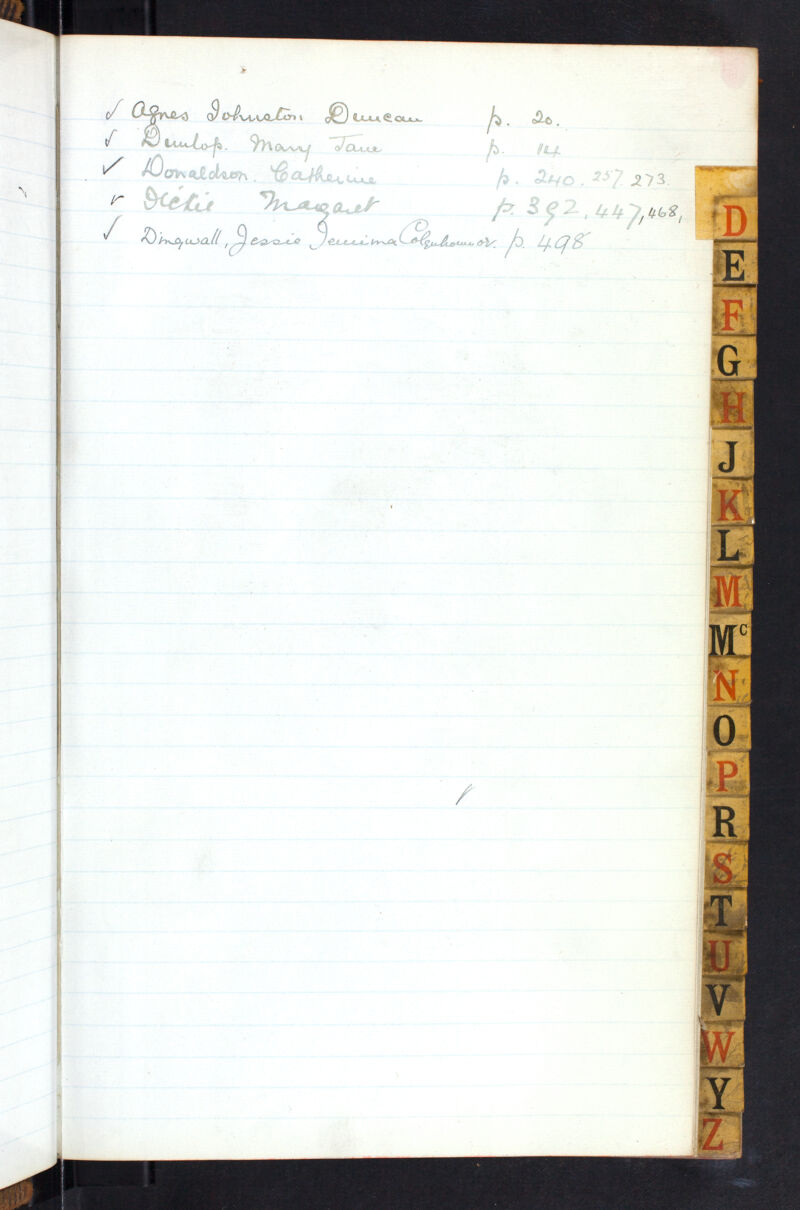 ✓ Agnes Johnston Duncan p. 20.
✓ Dunlop. Mary Jane p. 14
✓ Donaldson. Catherine p. 240. 257. 273.
✓ Dickie Margaret p. 392, 447, 468,
✓ Dingwall, Jessie Jemima p. 498
D
E
F
G
H
J
K
L
M
Mc
N
O
P
R
S
T
U
V
W
Y
Z